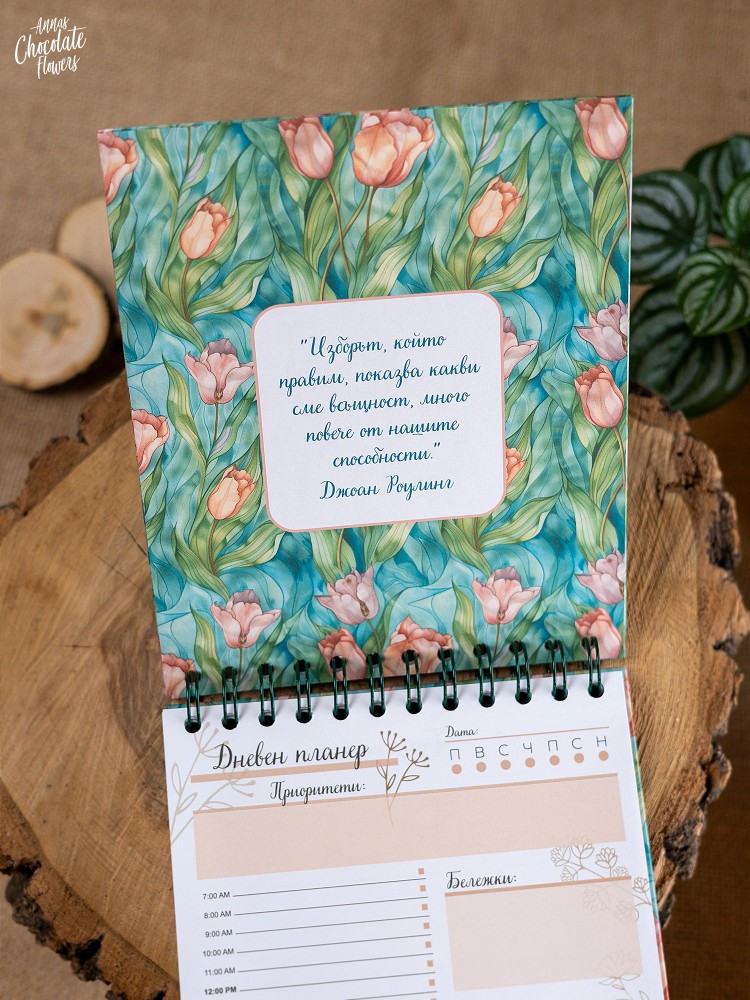 Annas
Chocolate
Flowers
"Изборът, който
правим, показва какви
сме всъщност, много
повече от нашите
способности."
Джоан Роулинг
Дневен планер
Дата:
П В С Ч П С Н
Приоритети:
7:00 AM
8:00 AM
9:00 AM
10:00 AM
11:00 AM
12:00 PM
Бележки: